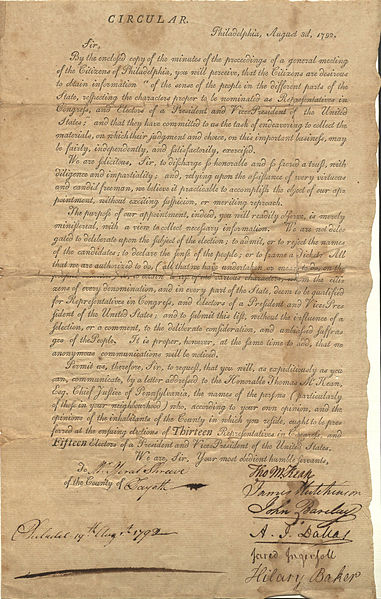 CIRCULAR.
Philadelphia, August 3d, 1792.
Sir,
By the enclosed copy of the minutes of the proceedings of a general meeting
of the Citizens of Philadelphia, you will perceive, that the Citizens are desirous
to obtain information "of the sense of the people in the different parts of the
State, respecting the characters proper to be nominated as Representatives in
Congress, and Electors of a President and Vice President of the United
States; and that they have committed to us the task of endeavouring to collect the
materials, on which their judgment and choice, on this important business, may
be fairly, independently, and satisfactorily, exercised.
We are solicitous, Sir, to discharge so honorable and so sacred a trust, with
diligence and impartiality; and, relying upon the assistance of every virtuous
and candid freeman, we believe it practicable to accomplish the object of our ap-
pointment, without exciting suspicion, or meriting reproach.
The purpose of our appointment, indeed, you will readily observe, is merely
ministerial, with a view to collect necessary information. We are not dele-
gated to deliberate upon the subject of the election; to admit, or to reject the names
of the candidates; to declare the sense of the people; or to frame a Ticket: All
that we are authorized to do, (all that we have undertaken or mean to do) on the
of the various from the citi-
zens of every denomination, and in every part of the State, deem to be qualified
for Representatives in Congress, and Electors of a President and Vice Pres-
ident of the United States; and to submit this list, without the influence of a
selection, or a comment, to the deliberate consideration, and unbiassed suffra-
ges of the People. It is proper, however, at the same time to add, that no
anonymous communications will be noticed.
Permit us, therefore, Sir, to request, that you will, as expeditiously as you
can, communicate, by a letter addressed to the Honorable Thomas M'Kean,
Esq. Chief Justice of Pennsylvania, the names of the persons (particularly
of those in your neighbourhood) who, according to your own opinion, and the
opinions of the inhabitants of the County in which you reside, ought to be pre-
ferred at the ensuing elections of Thirteen Representatives in Congress, and
Fifteen Electors of a President and Vice President of the United States.
We are, Sir, Your most obedient humble servants,
To Mr. Shreve
of the County of Fayette
Philadel 19th Augst 1792
Tho M:Kean
James Hutchinson
John Barclay
A. J. Dallas
Jared Ingersoll
Hilary Baker